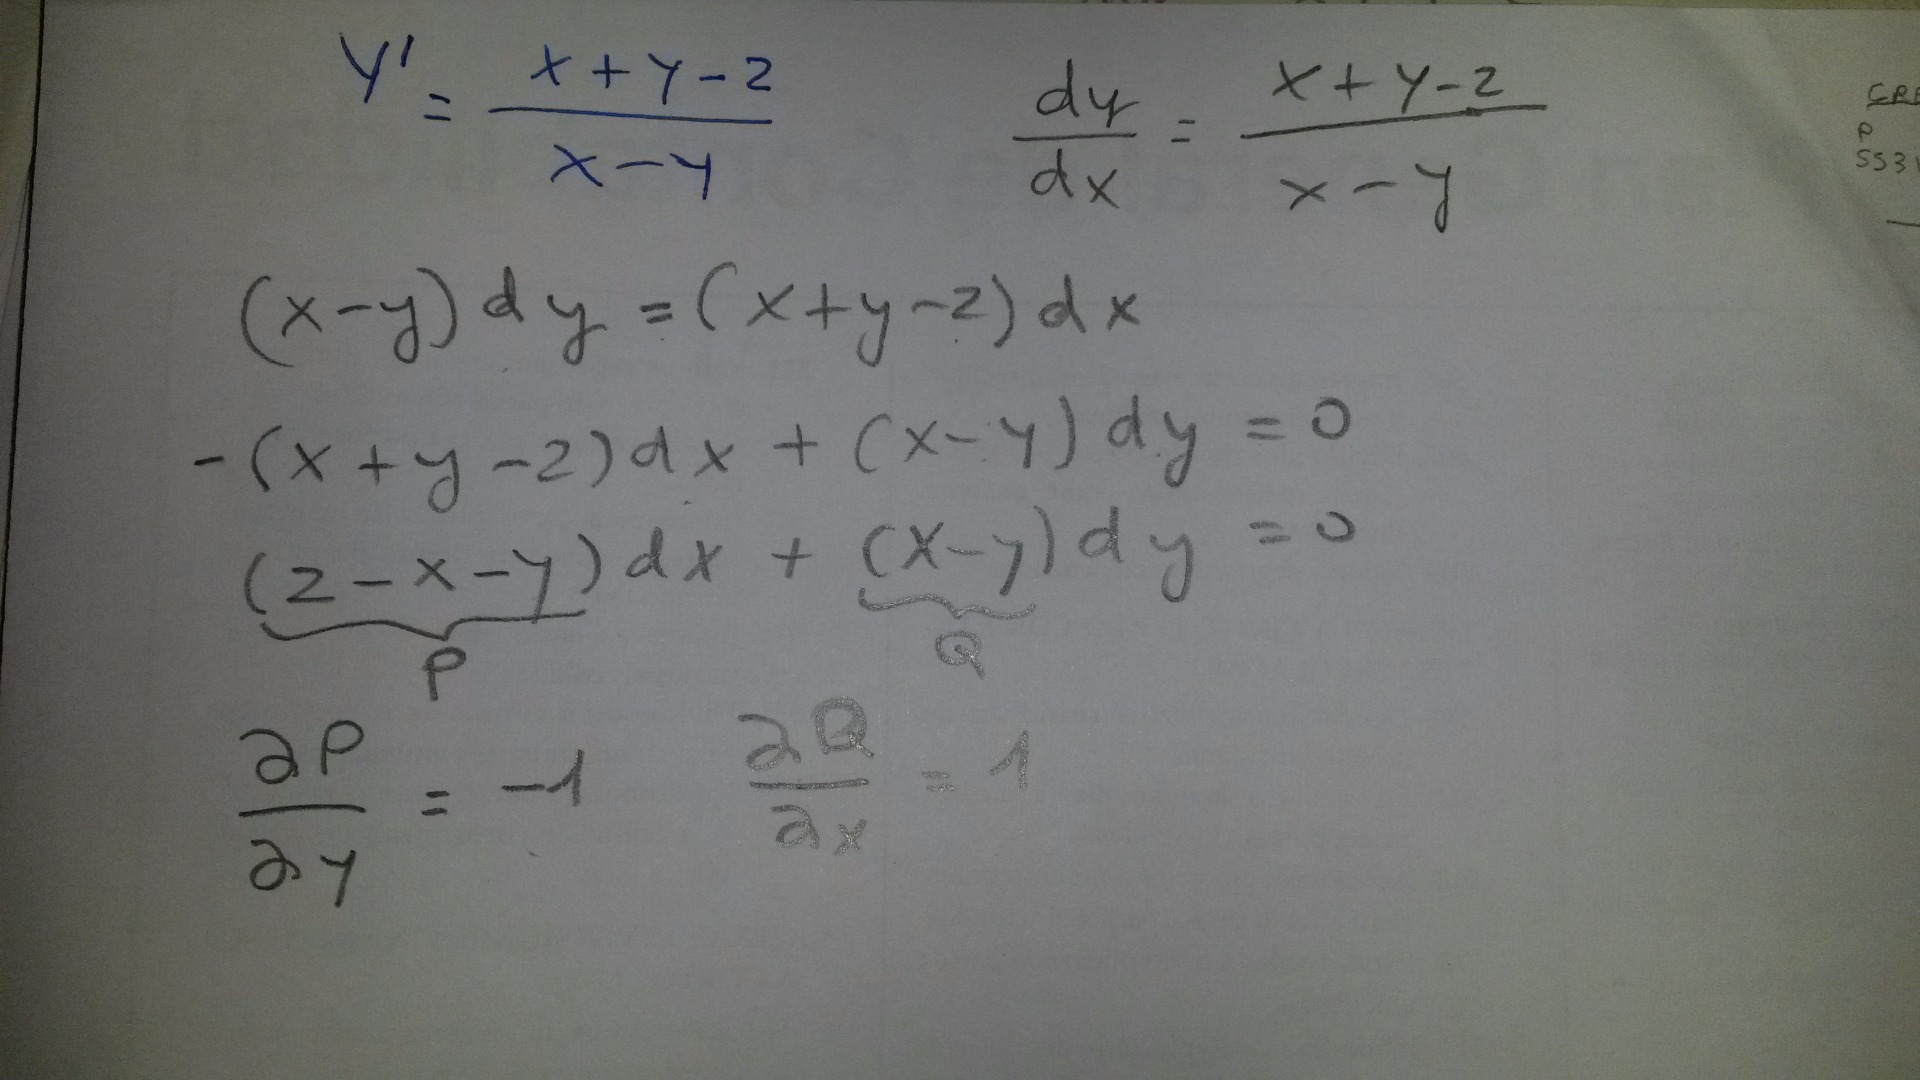 y' = x+y-2 / x-y    dy/dx = x+y-2 / x-y
(x-y) dy = (x+y-2) dx
-(x+y-2) dx + (x-y) dy = 0
(2-x-y) dx + (x-y) dy = 0
P    Q
∂P/∂y = -1    ∂Q/∂x = 1